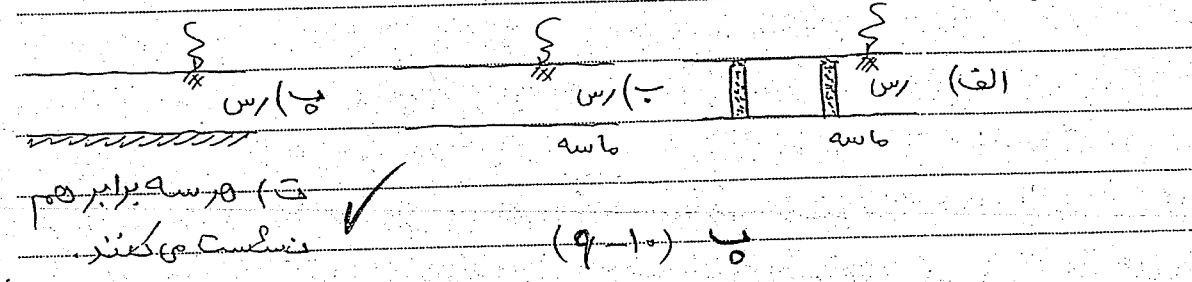 الف) رس ب) رس پ) رس
ماسه ماسه
ت) هر سه برابر هم
نشست می‌کنند.
پ (۱۰-۹)